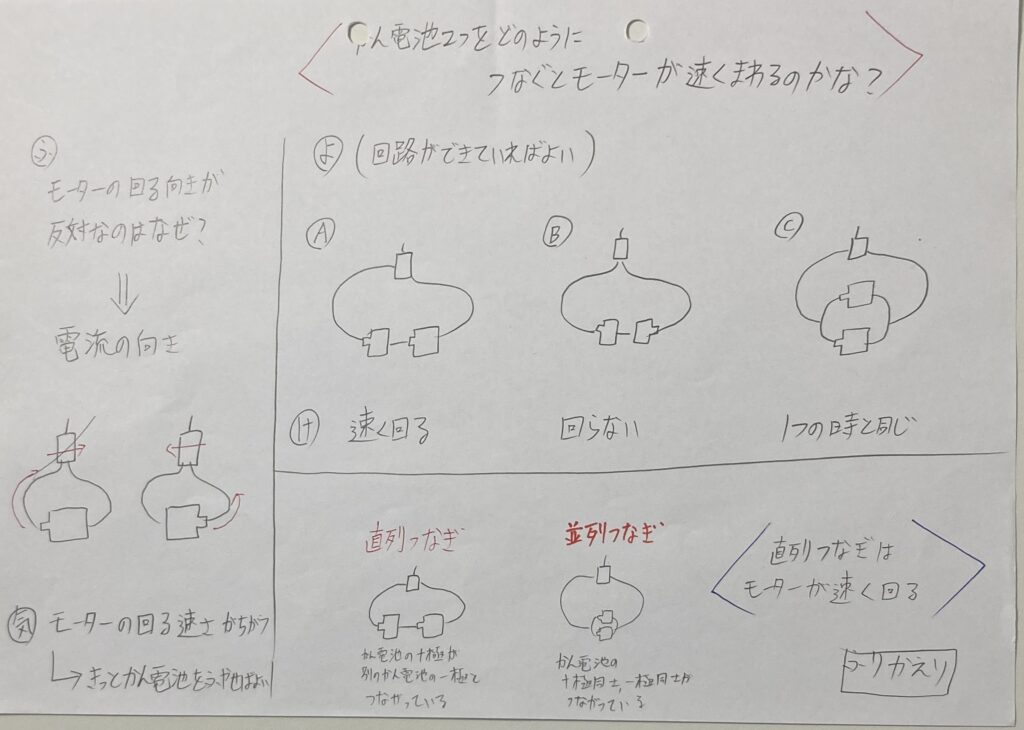 かん電池2つをどのように
つなぐとモーターが速くまわるのかな？
ふ
モーターの回る向きが
反対なのはなぜ？
電流の向き
気 モーターの回る速さがちがう
きっとかん電池をふやせばよい
よ (回路ができていればよい)
A
B
C
け 速く回る 回らない 1つの時と同じ
直列つなぎ
かん電池の＋極が
別のかん電池の－極と
つながっている
並列つなぎ
かん電池の
＋極同士、－極同士が
つながっている
直列つなぎは
モーターが速く回る
ふりかえり